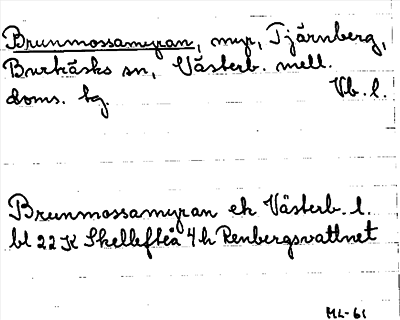 Brunmossamyran, myr, Tjärnberg,
Burträsks sn, Västerb. mell.
doms. bg. Vb. l.
Brunmossamyran ek Västerb. l.
bl 22 K Skellefteå 4 h Renbergsvattnet
ML-61